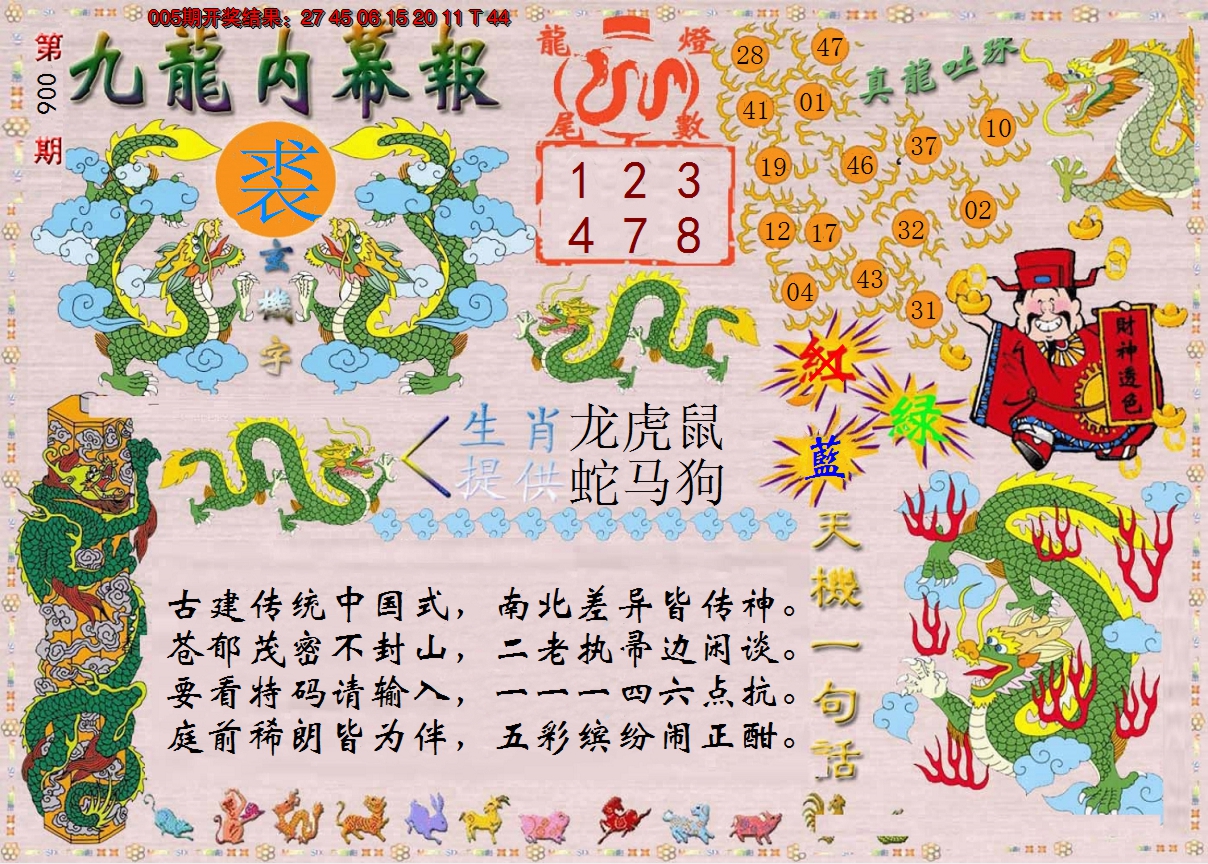 005期开奖结果：27 45 06 15 20 11 T 44
第006期
九龍内幕報
裘
玄機字
龍燈尾數
1 2 3
4 7 8
真龍吐珠
28 47
41 01
19 46 37 10
12 17 32 02
04 43 31
財神透色
紅
綠
藍
生肖提供
龙虎鼠
蛇马狗
天機一句話
古建传统中国式，南北差异皆传神。
苍郁茂密不封山，二老执帚边闲谈。
要看特码请输入，一一一四六点抗。
庭前稀朗皆为伴，五彩缤纷闹正酣。